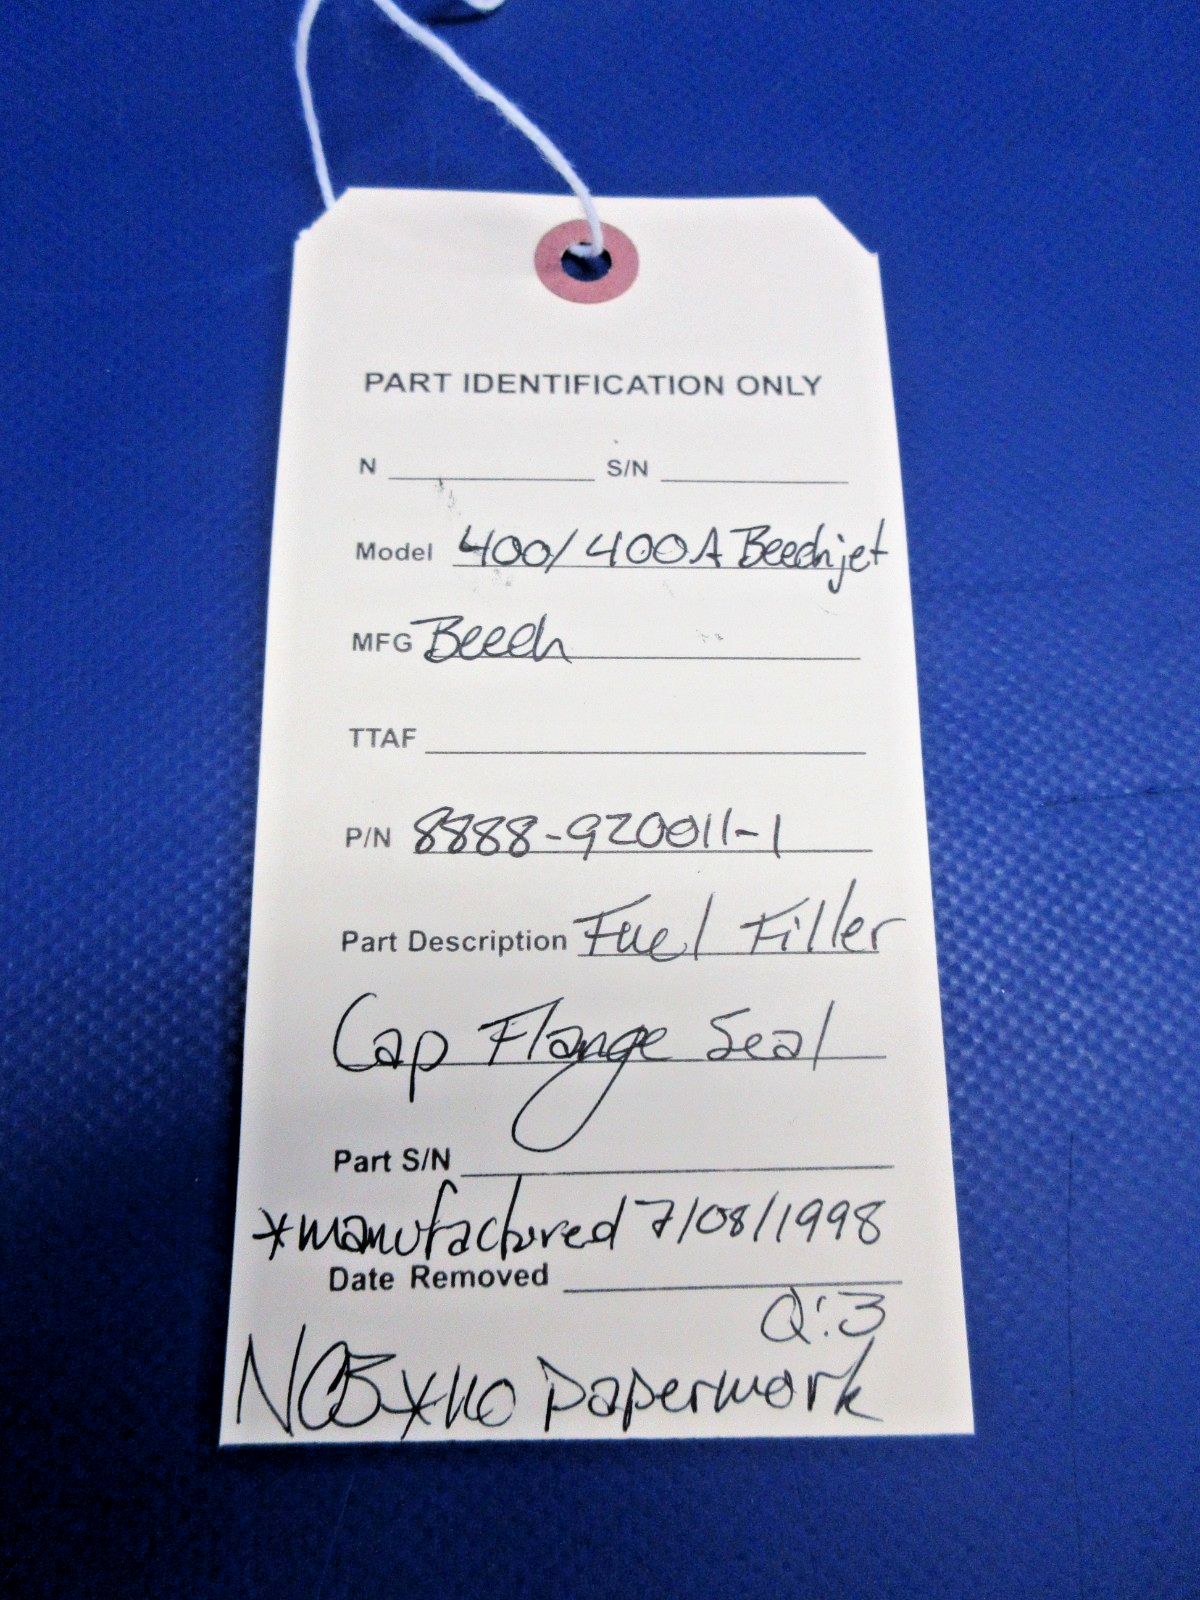 PART IDENTIFICATION ONLY
N S/N
Model 400/400A Beechjet
MFG Beech
TTAF
P/N 8888-920011-1
Part Description Fuel Filler
Cap Flange Seal
Part S/N
*manufactured 7/08/1998
Date Removed
Q:3
NOS *no paperwork